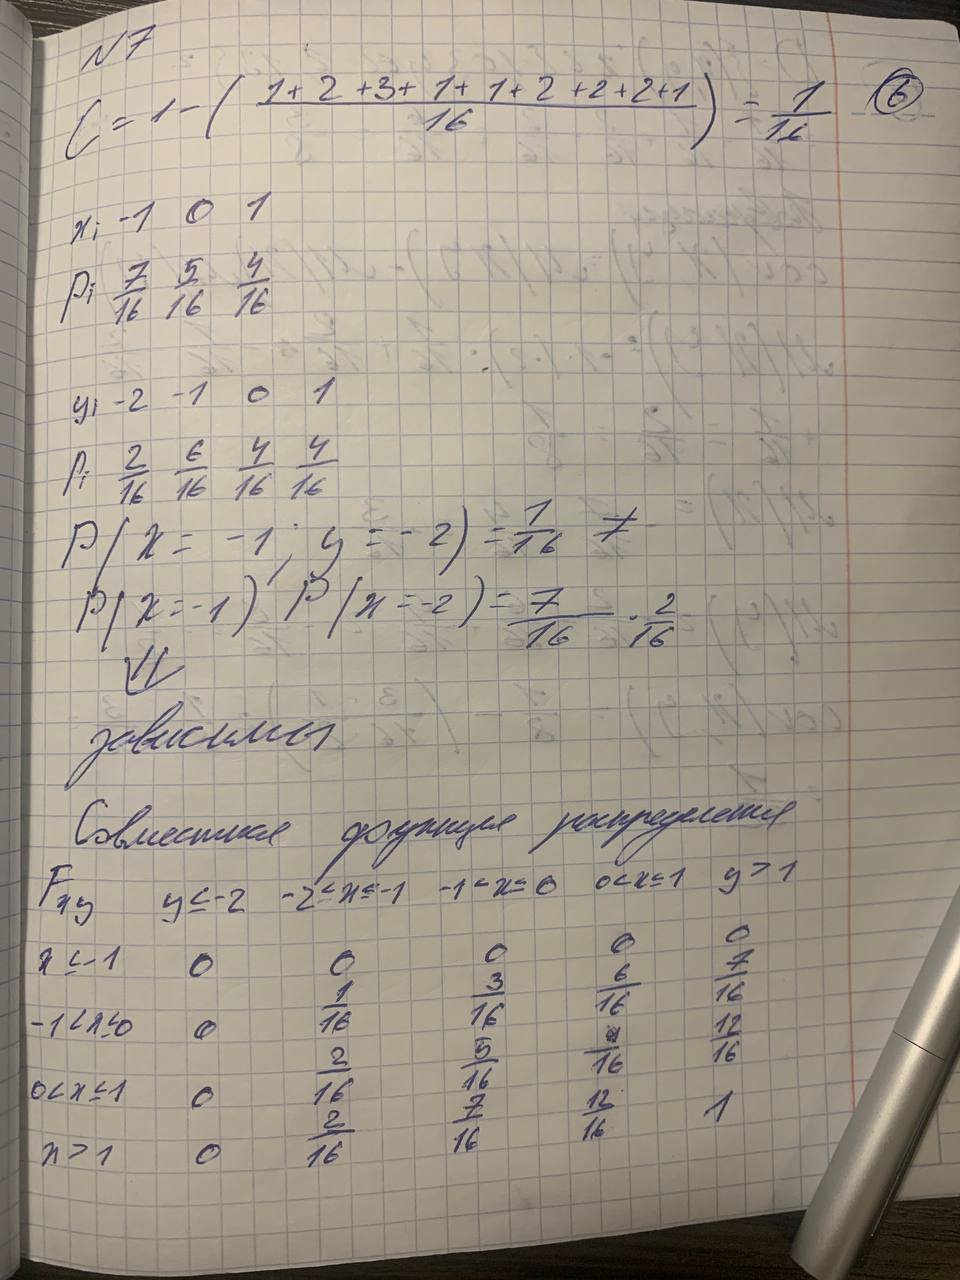 N7
C = 1 - ( (1+2+3+1+1+2+2+2+1)/16 ) = 1/16
6
xi -1 0 1
Pi 7/16 5/16 4/16
yi -2 -1 0 1
Pi 2/16 6/16 4/16 4/16
P(x = -1; y = -2) = 1/16 ≠
P(x=-1) P(x=-2) = 7/16 · 2/16
⇓
зависимы
Совместная функция распределения
Fxy y≤-2 -2<x≤-1 -1<x≤0 0<x≤1 y>1
x≤-1 0 0 0 0 0
-1<x≤0 0 1/16 3/16 6/16 7/16
0<x≤1 0 2/16 5/16 /16 12/16
x>1 0 2/16 7/16 12/16 1